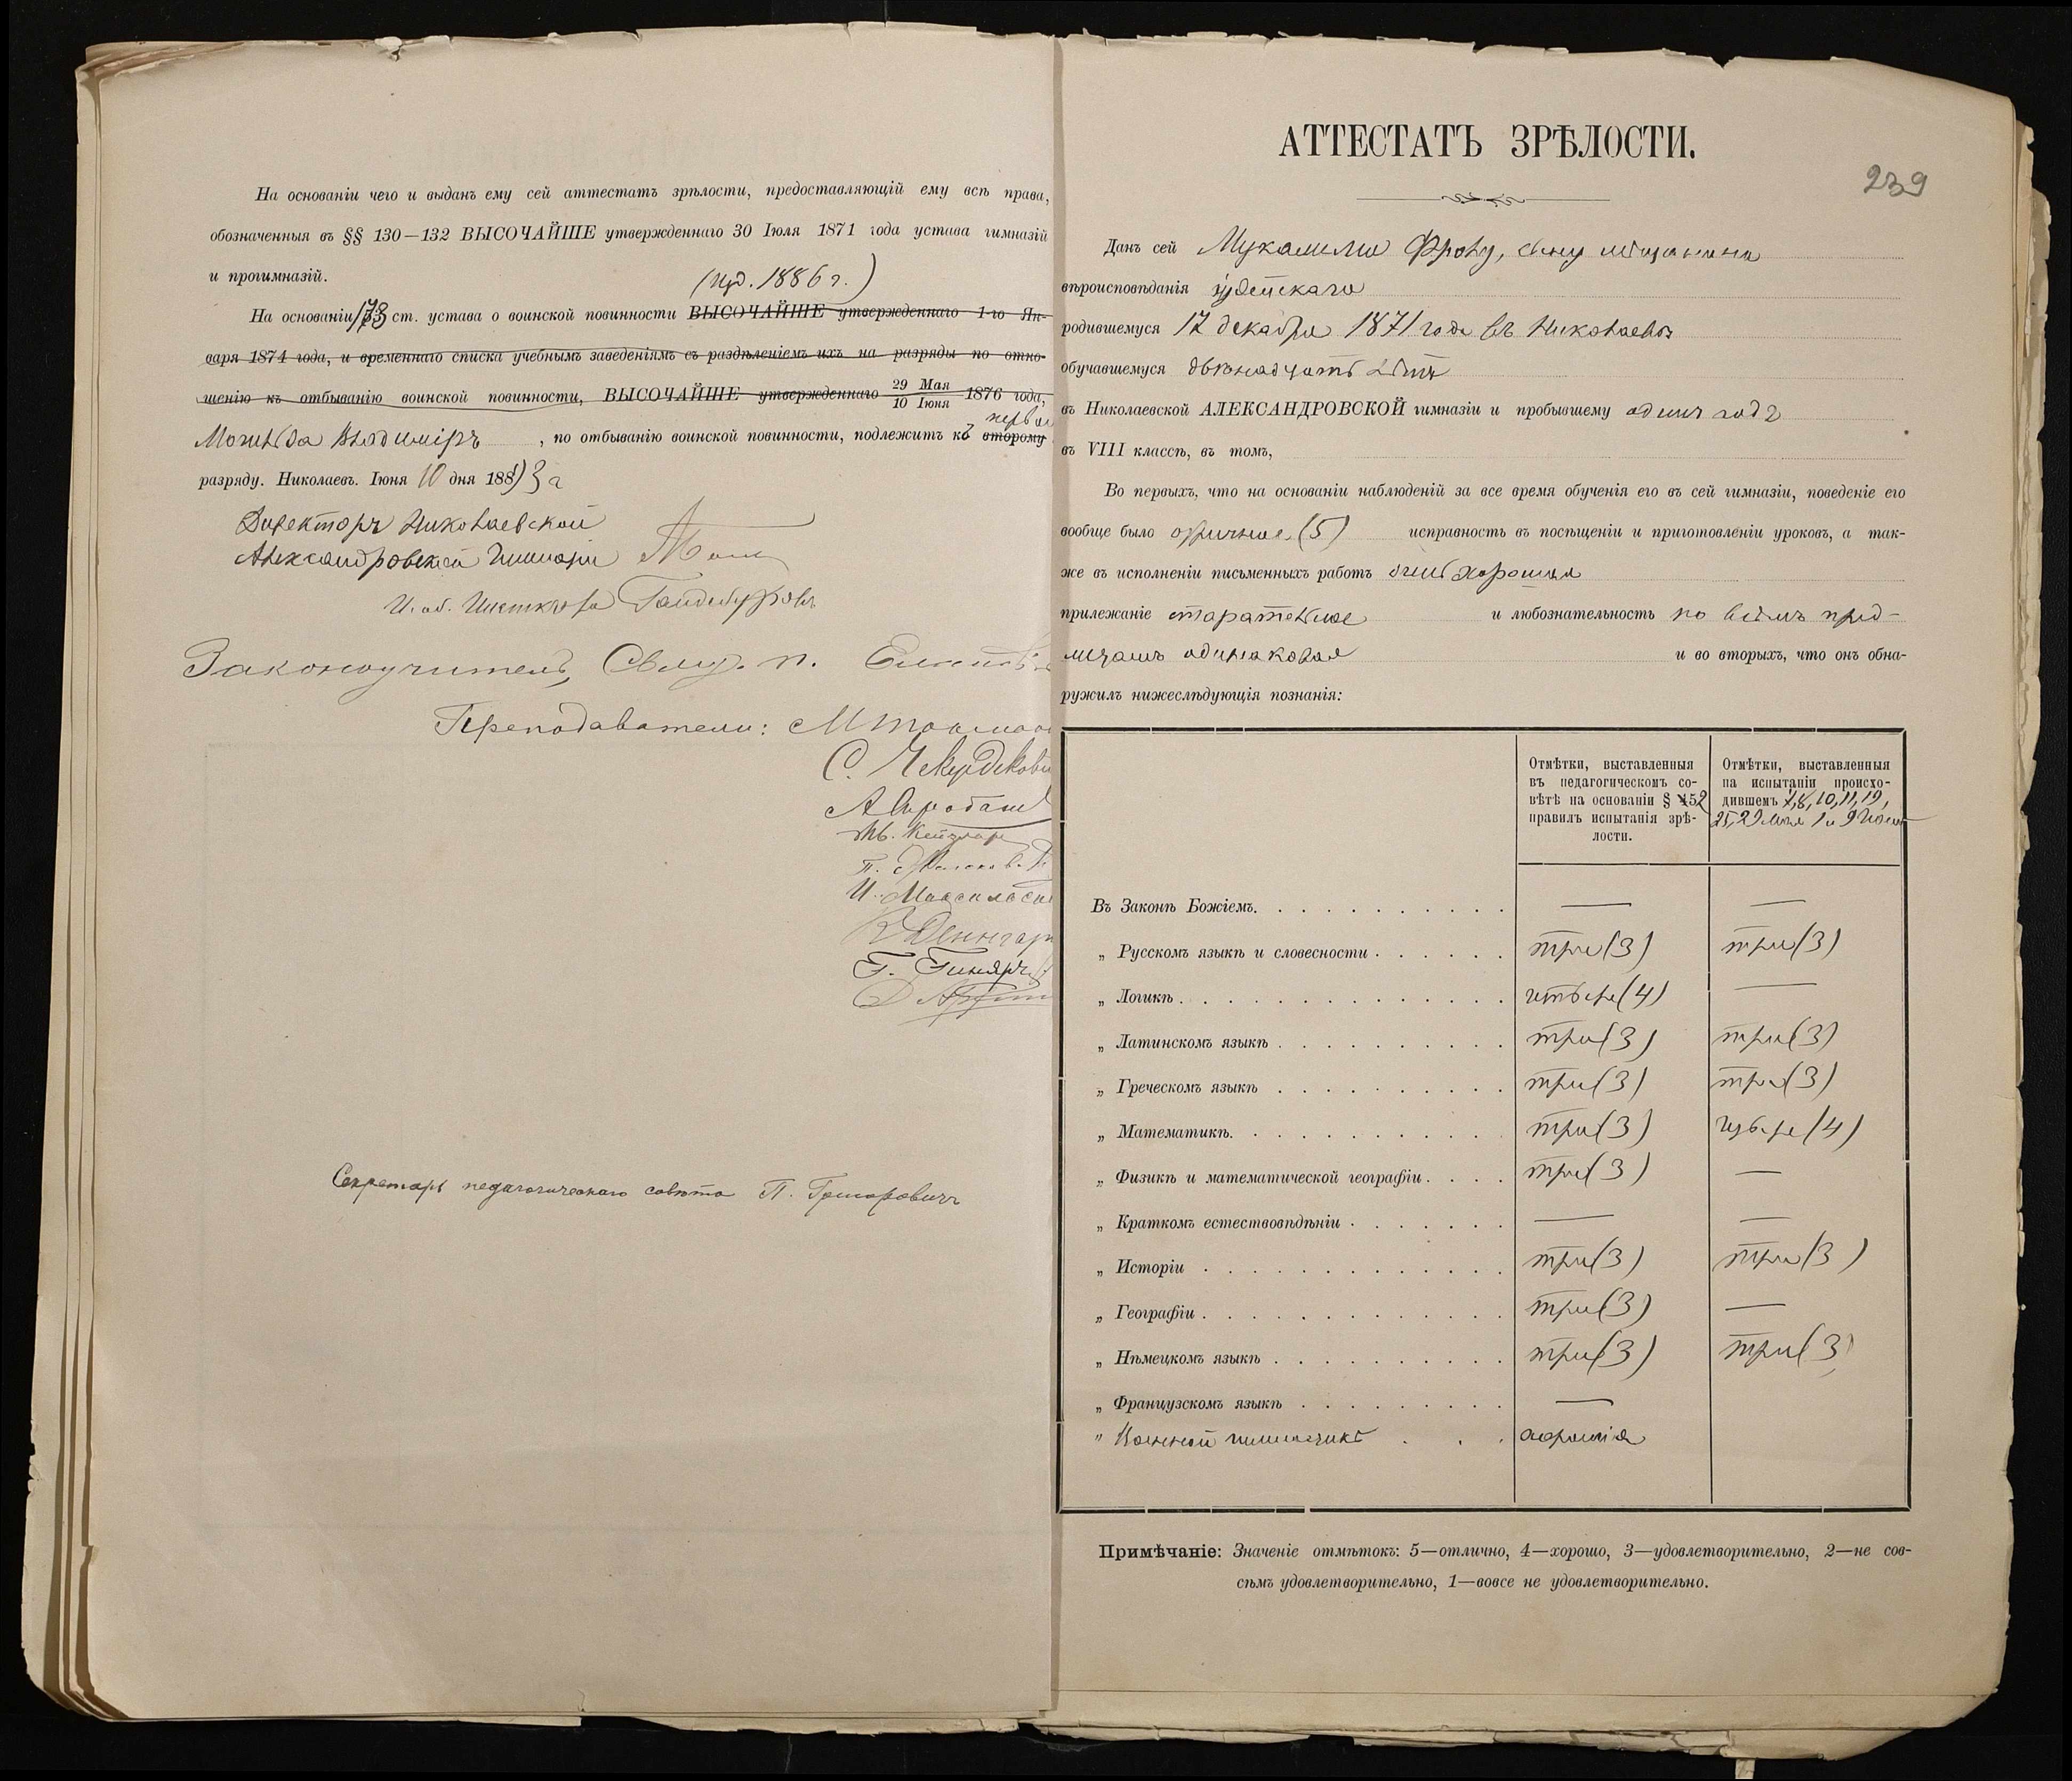 На основаніи чего и выданъ ему сей аттестатъ зрѣлости, предоставляющій ему всѣ права,
обозначенныя въ §§ 130—132 ВЫСОЧАЙШЕ утвержденнаго 30 Іюля 1871 года устава гимназій
и прогимназій.
(изд. 1886 г.)
На основаніи 173 ст. устава о воинской повинности ВЫСОЧАЙШЕ утвержденнаго 1-го Ян-
варя 1874 года, и временнаго списка учебнымъ заведеніямъ съ раздѣленіемъ ихъ на разряды по отно-
шенію къ отбыванію воинской повинности, ВЫСОЧАЙШЕ утвержденнаго 29 Мая 10 Іюня 1876 года,
Владиміръ , по отбыванію воинской повинности, подлежитъ къ второму
разряду. Николаевъ. Іюня 10 дня 188
Директоръ Николаевской
Александровской Гимназіи
И. об. Инспектора
Законоучитель, Свящ.
Преподаватели:
С.
Секретарь педагогическаго совѣта П. Григоровичъ
АТТЕСТАТЪ ЗРѢЛОСТИ.
239
Данъ сей Фролу, сыну мѣщанина
вѣроисповѣданія іудейскаго
родившемуся 17 декабря 1871 года въ Николаевѣ
обучавшемуся двѣнадцать лѣтъ
въ Николаевской АЛЕКСАНДРОВСКОЙ гимназіи и пробывшему одинъ годъ
въ VIII классѣ, въ томъ,
Во первыхъ, что на основаніи наблюденій за все время обученія его въ сей гимназіи, поведеніе его
вообще было отличное (5) исправность въ посѣщеніи и приготовленіи уроковъ, а так-
же въ исполненіи письменныхъ работъ очень хорошая
прилежаніе старательное и любознательность по всѣмъ пред-
метамъ одинаковая и во вторыхъ, что онъ обна-
ружилъ нижеслѣдующія познанія:
Отмѣтки, выставленныя
въ педагогическомъ со-
вѣтѣ на основаніи § 52
правилъ испытанія зрѣ-
лости.
Отмѣтки, выставленныя
на испытаніи происхо-
дившемъ 7, 8, 10, 11, 19,
25, 29 Мая 1 и 9 Іюня
Въ Законѣ Божіемъ. — —
„ Русскомъ языкѣ и словесности три (3) три (3)
„ Логикѣ четыре (4) —
„ Латинскомъ языкѣ три (3) три (3)
„ Греческомъ языкѣ три (3) три (3)
„ Математикѣ. три (3) четыре (4)
„ Физикѣ и математической географіи три (3) —
„ Краткомъ естествовѣдѣніи — —
„ Исторіи три (3) три (3)
„ Географіи три (3) —
„ Нѣмецкомъ языкѣ три (3) три (3)
„ Французскомъ языкѣ —
„ Военной гимнастикѣ хорошія
Примѣчаніе: Значеніе отмѣтокъ: 5—отлично, 4—хорошо, 3—удовлетворительно, 2—не сов-
сѣмъ удовлетворительно, 1—вовсе не удовлетворительно.